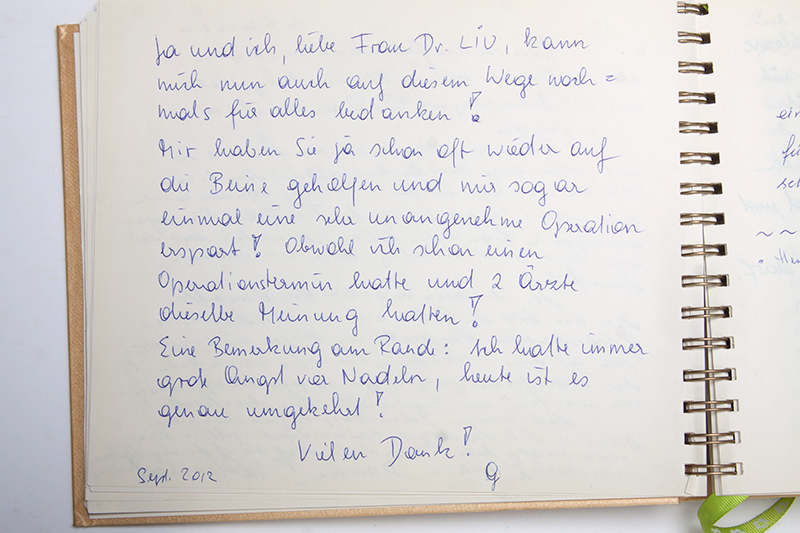 Ja und ich, liebe Frau Dr. LIU, kann
mich nun auch auf diesem Wege noch=
mals für alles bedanken!
Mir haben Sie ja schon oft wieder auf
die Beine geholfen und mir sogar
einmal eine sehr unangenehme Operation
erspart! Obwohl ich schon einen
Operationstermin hatte und 2 Ärzte
dieselbe Meinung hatten!
Eine Bemerkung am Rande: Ich hatte immer
große Angst vor Nadeln, heute ist es
genau umgekehrt!
Vielen Dank!
G
Sept. 2012
ein
fü
sch
~ ~